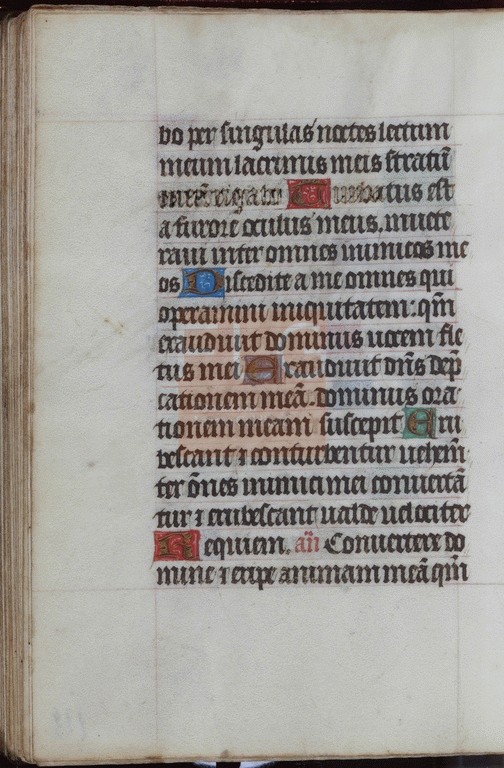 bo per singulas noctes lectum
meum lacrimis meis stratū
meū rigabo Turbatus est
a furore oculus meus, inuete
raui inter omnes inimicos me
os Discedite a me omnes qui
operamini iniquitatem: qm̄
exaudiuit dominus uocem fle
tus mei Exaudiuit dn̄s dep̄
cationem meā. dominus ora
tionem meam suscepit Eru
bescant ⁊ conturbentur uehem̄
ter ōnes inimici mei conuertā
tur ⁊ erubescant ualde uelociter
Requiem. an̄ Conuertere do
mine ⁊ eripe animam meā qm̄